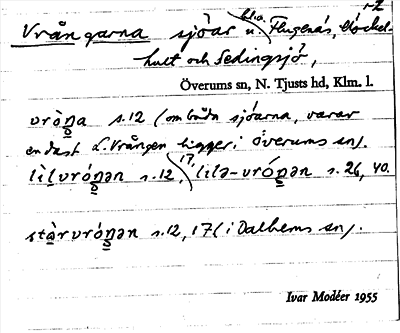 1-2
Vrångarna sjöar bl.a. u. Flugenäs, Stockel-
hult och Sedingsjö,
Överums sn, N. Tjusts hd, Klm. l.
vròŋa s.12 (om båda sjöarna, varav
endast L. Vrången ligger i Överums sn).
lilvróŋən s.12, 17, lilə-vróŋən s.26, 40.
stàrvróŋən s.12, 17 (i Dalhems sn).
Ivar Modéer 1955